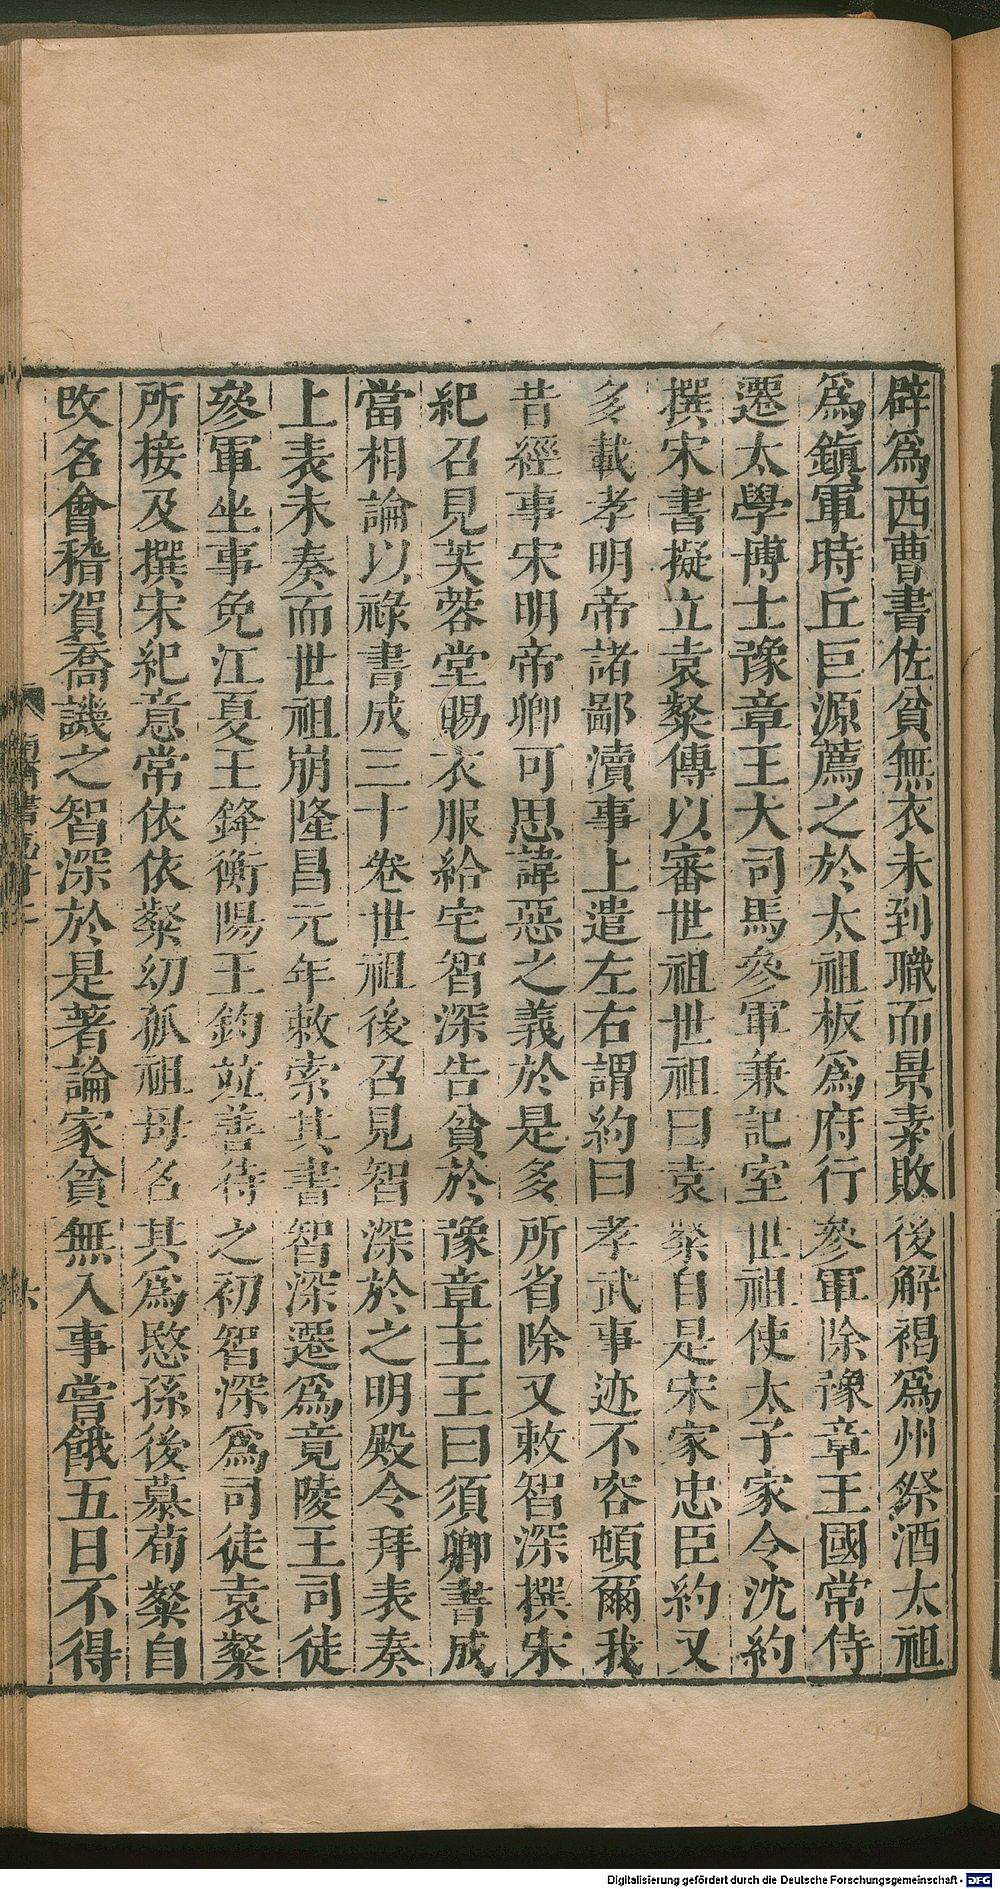 辟爲西曹書佐貧無衣未到職而景素敗後解褐爲州祭酒太祖
爲鎮軍時丘巨源薦之於太祖板爲府行參軍除豫章王國常侍
遷太學博士豫章王大司馬參軍兼記室世祖使太子家令沈約
撰宋書擬立袁粲傳以審世祖世祖曰袁粲自是宋家忠臣約又
多載孝明帝諸鄙瀆事上遣左右謂約曰孝武事迹不容頓爾我
昔經事宋明帝卿可思諱惡之義於是多所省除又敕智深撰宋
紀召見芙蓉堂賜衣服給宅智深告貧於豫章王王曰須卿書成
當相論以祿書成三十卷世祖後召見智深於之明殿令拜表奏
上表未奏而世祖崩隆昌元年敕索其書智深遷爲竟陵王司徒
參軍坐事免江夏王鋒衡陽王鈞並善待之初智深爲司徒袁粲
所接及撰宋紀意常依依粲幼孤祖母名其爲愍孫後慕荀粲自
改名會稽賀喬譏之智深於是著論家貧無人事嘗餓五日不得
六
Digitalisierung gefördert durch die Deutsche Forschungsgemeinschaft - DFG